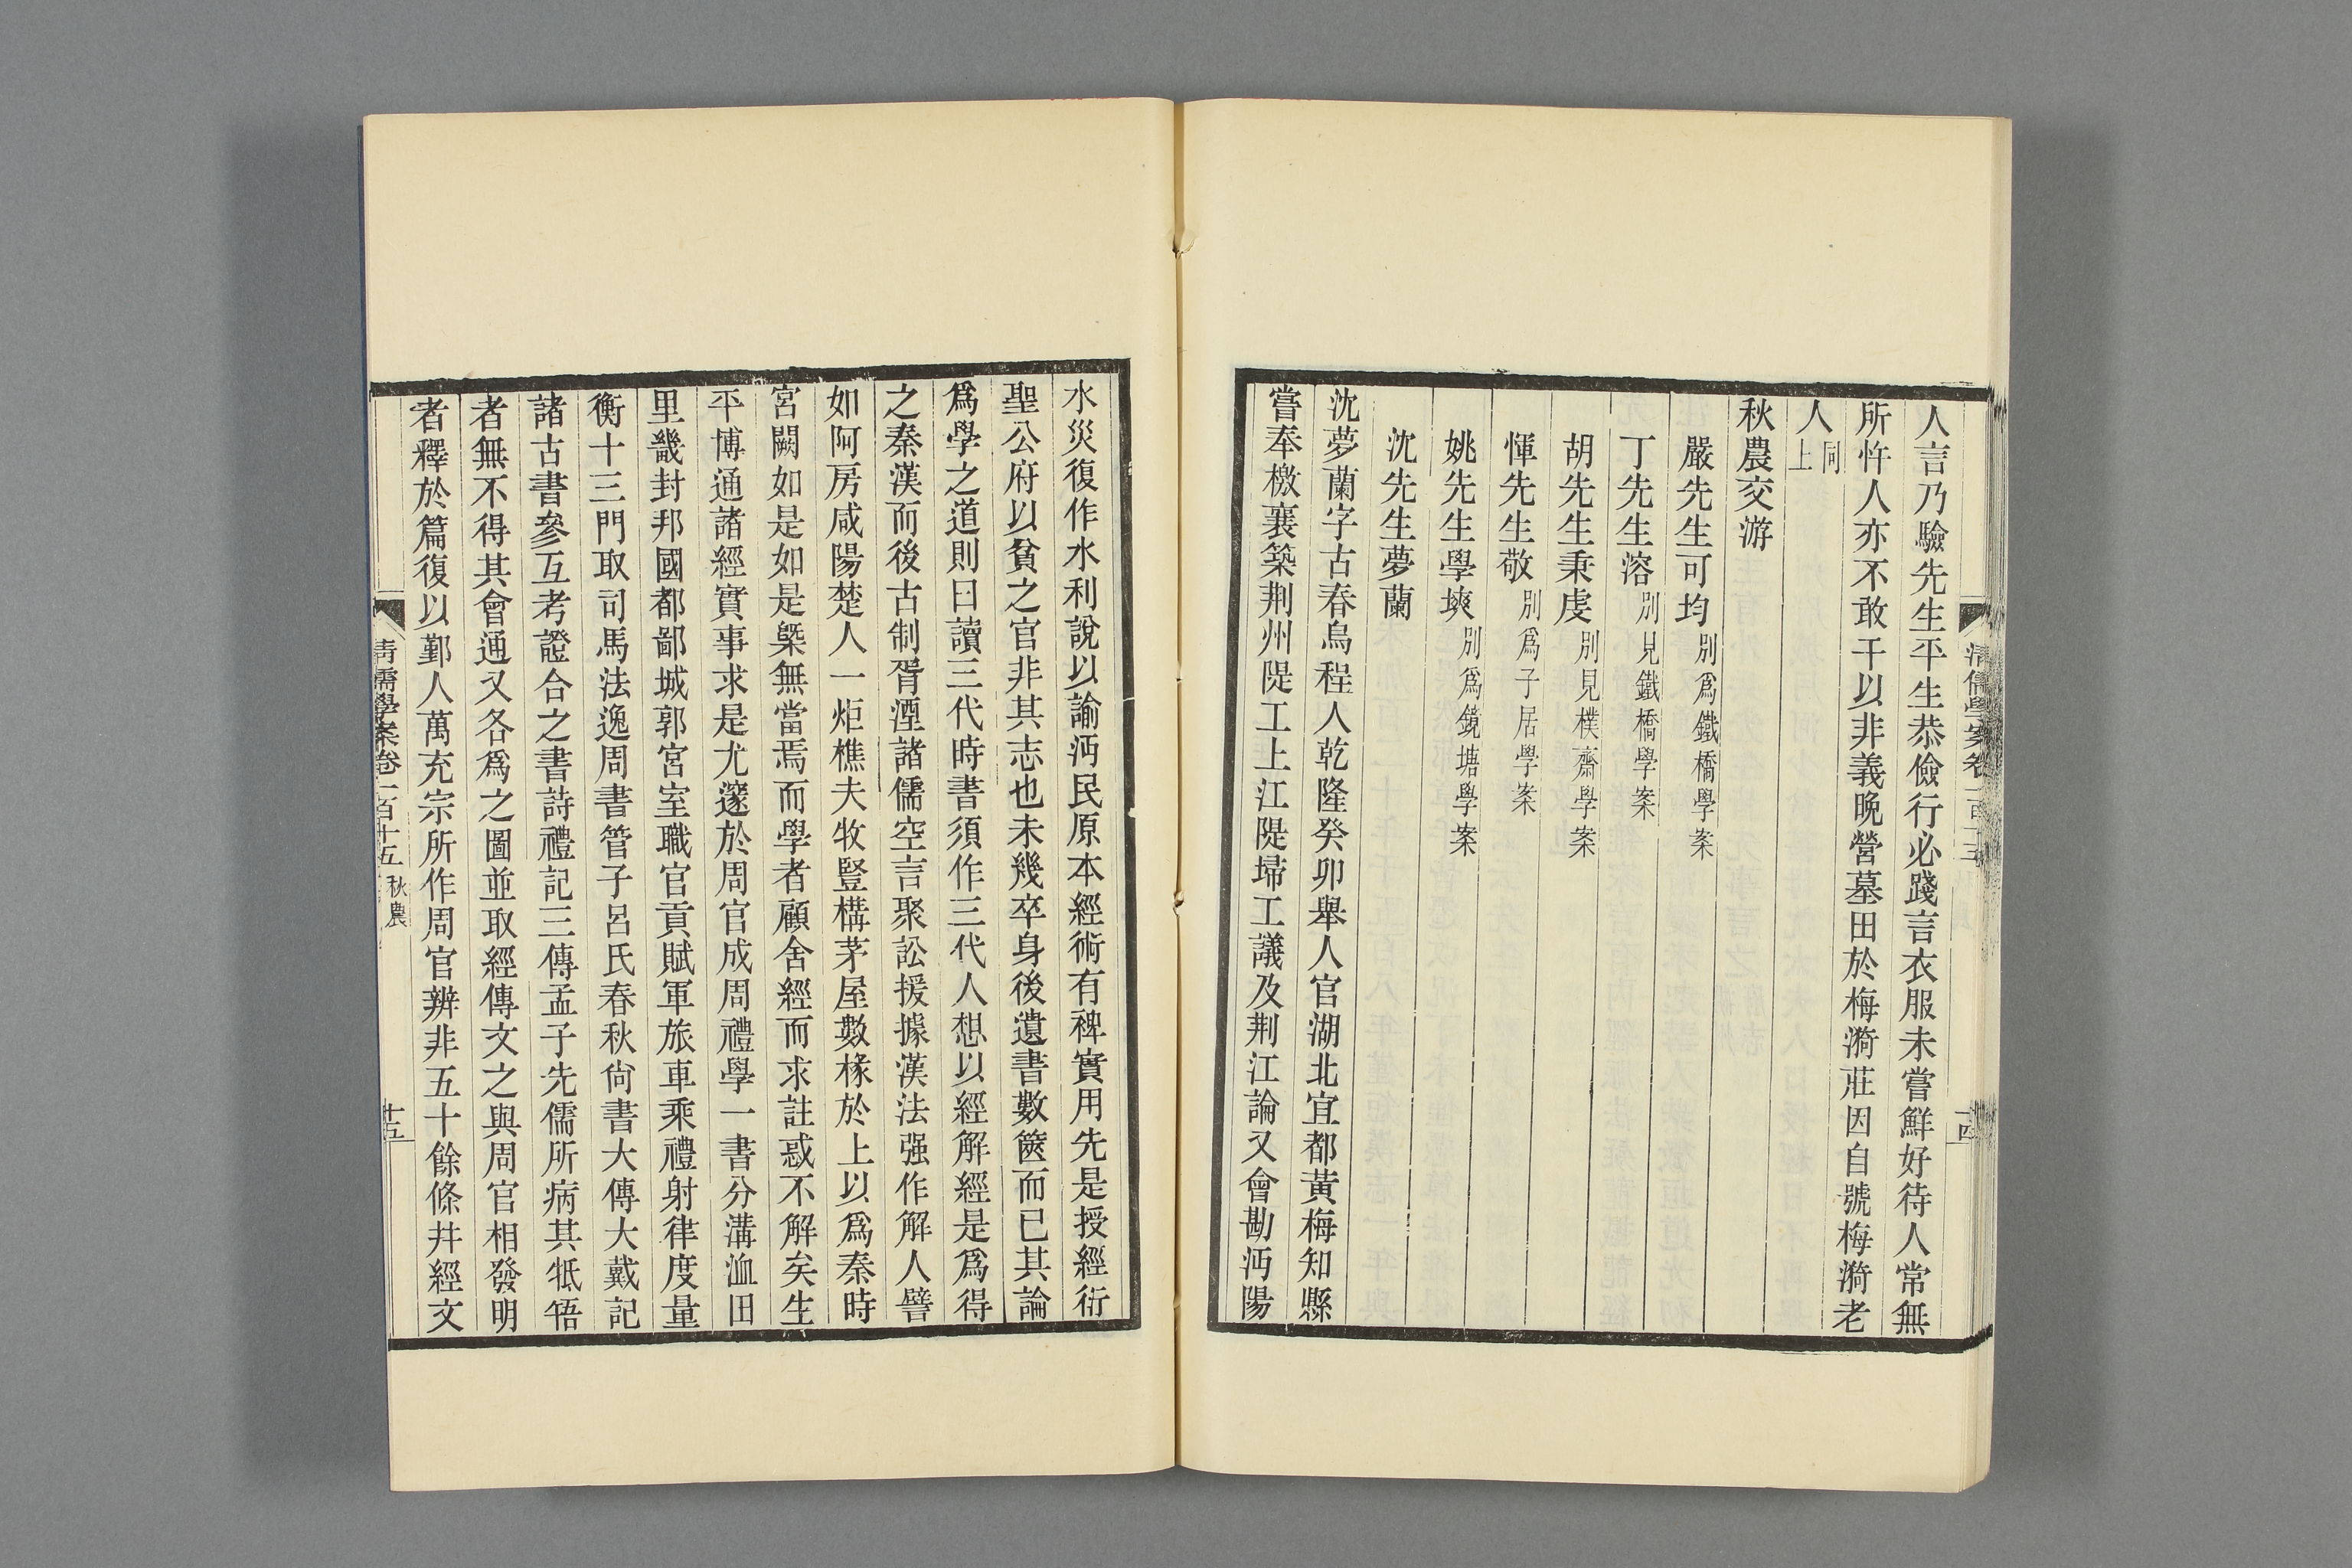 人言乃驗先生平生恭儉行必踐言衣服未嘗鮮好待人常無
所忤人亦不敢干以非義晚營墓田於梅漪莊因自號梅漪老
人同上
秋農交游
嚴先生可均別爲鐵橋學案
丁先生溶別見鐵橋學案
胡先生秉虔別見樸齋學案
惲先生敬別爲子居學案
姚先生學塽別爲鏡塘學案
沈先生夢蘭
沈夢蘭字古春烏程人乾隆癸卯舉人官湖北宜都黃梅知縣
嘗奉檄襄築荆州隄工上江隄埽工議及荆江論又會勘沔陽
水災復作水利說以諭沔民原本經術有裨實用先是授經衍
聖公府以貧之官非其志也未幾卒身後遺書數篋而已其論
爲學之道則曰讀三代時書須作三代人想以經解經是爲得
之秦漢而後古制胥湮諸儒空言聚訟援據漢法强作解人譬
如阿房咸陽楚人一炬樵夫牧豎構茅屋數椽於上以爲秦時
宮闕如是如是槩無當焉而學者顧舍經而求註惑不解矣生
平博通諸經實事求是尤邃於周官成周禮學一書分溝洫田
里畿封邦國都鄙城郭宮室職官貢賦軍旅車乘禮射律度量
衡十三門取司馬法逸周書管子呂氏春秋尙書大傳大戴記
諸古書參互考證合之書詩禮記三傳孟子先儒所病其牴牾
者無不得其會通又各爲之圖並取經傳文之與周官相發明
者釋於篇復以鄞人萬充宗所作周官辨非五十餘條幷經文
清儒學案卷一百十五 秋農
十五